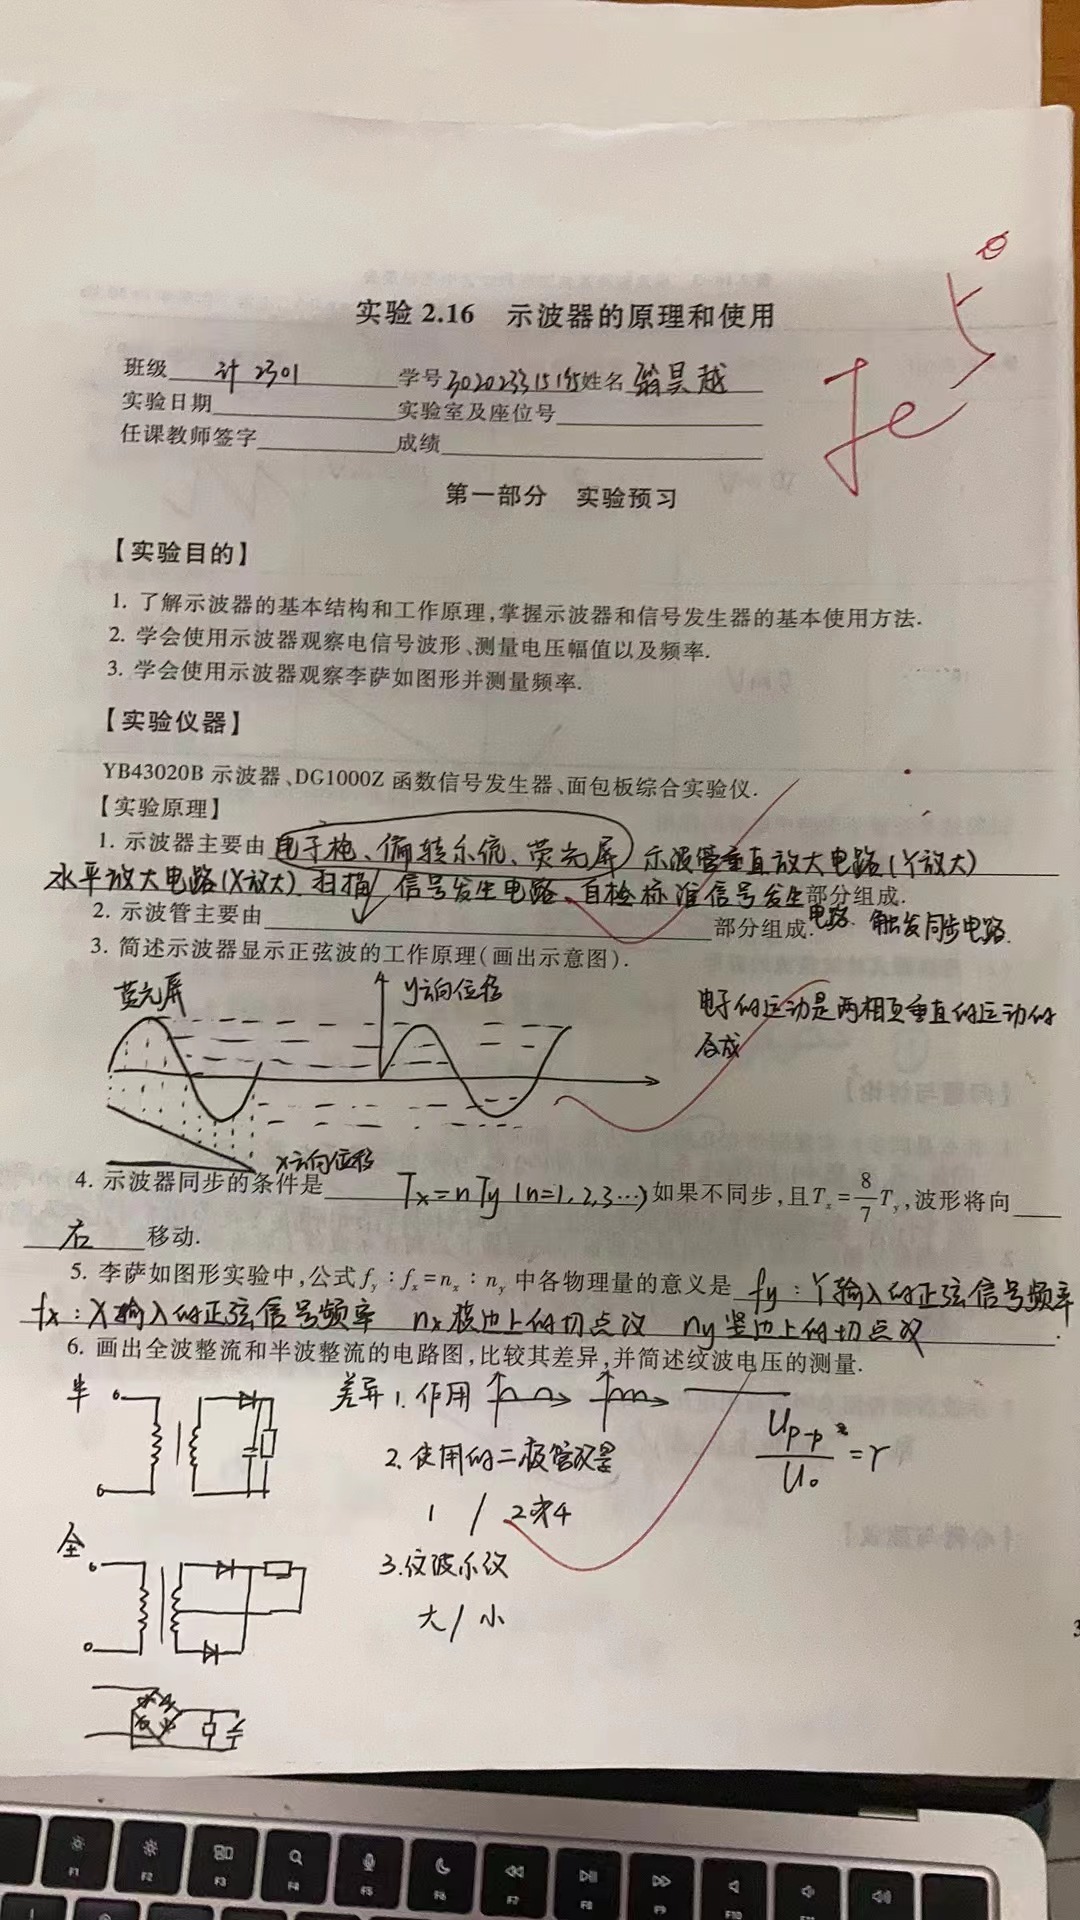 实验2.16 示波器的原理和使用
班级 计2301 学号 302023315195 姓名 翁昊越
实验日期 实验室及座位号
任课教师签字 成绩
第一部分 实验预习
【实验目的】
1. 了解示波器的基本结构和工作原理,掌握示波器和信号发生器的基本使用方法.
2. 学会使用示波器观察电信号波形、测量电压幅值以及频率.
3. 学会使用示波器观察李萨如图形并测量频率.
【实验仪器】
YB43020B 示波器、DG1000Z 函数信号发生器、面包板综合实验仪.
【实验原理】
1. 示波器主要由 电子枪、偏转系统、荧光屏 示波管垂直放大电路(Y放大)
水平放大电路(X放大) 扫描 信号发生电路、自检标准信号发生 部分组成.
电路. 触发同步电路.
2. 示波管主要由 部分组成.
3. 简述示波器显示正弦波的工作原理(画出示意图).
荧光屏 Y方向位移
电子的运动是两相互垂直的运动的
合成
X方向位移
4. 示波器同步的条件是 Tx=nTy(n=1,2,3…) 如果不同步,且Tx=8/7Ty,波形将向
右 移动.
5. 李萨如图形实验中,公式 fy:fx=nx:ny 中各物理量的意义是 fy:Y输入的正弦信号频率
fx:X输入的正弦信号频率 nx横边上的切点数 ny竖边上的切点数.
6. 画出全波整流和半波整流的电路图,比较其差异,并简述纹波电压的测量.
半 差异 1.作用
Up-p/U0=r
2.使用的二极管数量
1 / 2或4
全
3.纹波系数
大/小
F1 F2 F3 F4 F5 F6 F7 F8 F9 F10 F11